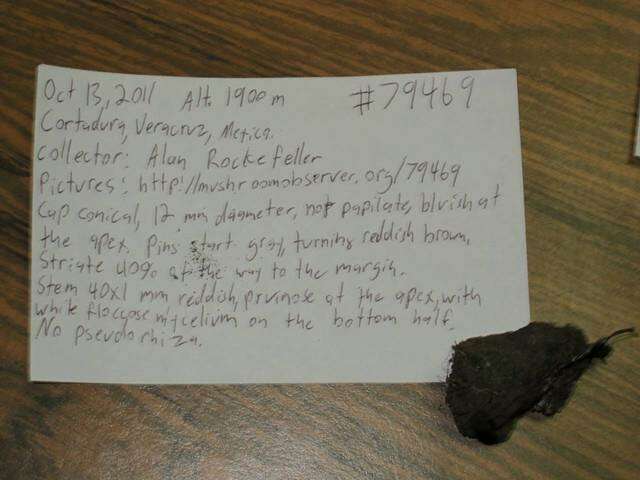 Oct 13, 2011 Alt. 1900 m #79469
Cortadura, Veracruz, Mexico.
Collector: Alan Rockefeller
Pictures: http://mushroomobserver.org/79469
Cap conical, 12 mm diameter, not papilate, bluish at
the apex. Pins start gray, turning reddish brown.
Striate 40% of the way to the margin.
Stem 40x1 mm reddish, pruinose at the apex, with
white floccose mycelium on the bottom half.
No pseudorhiza.